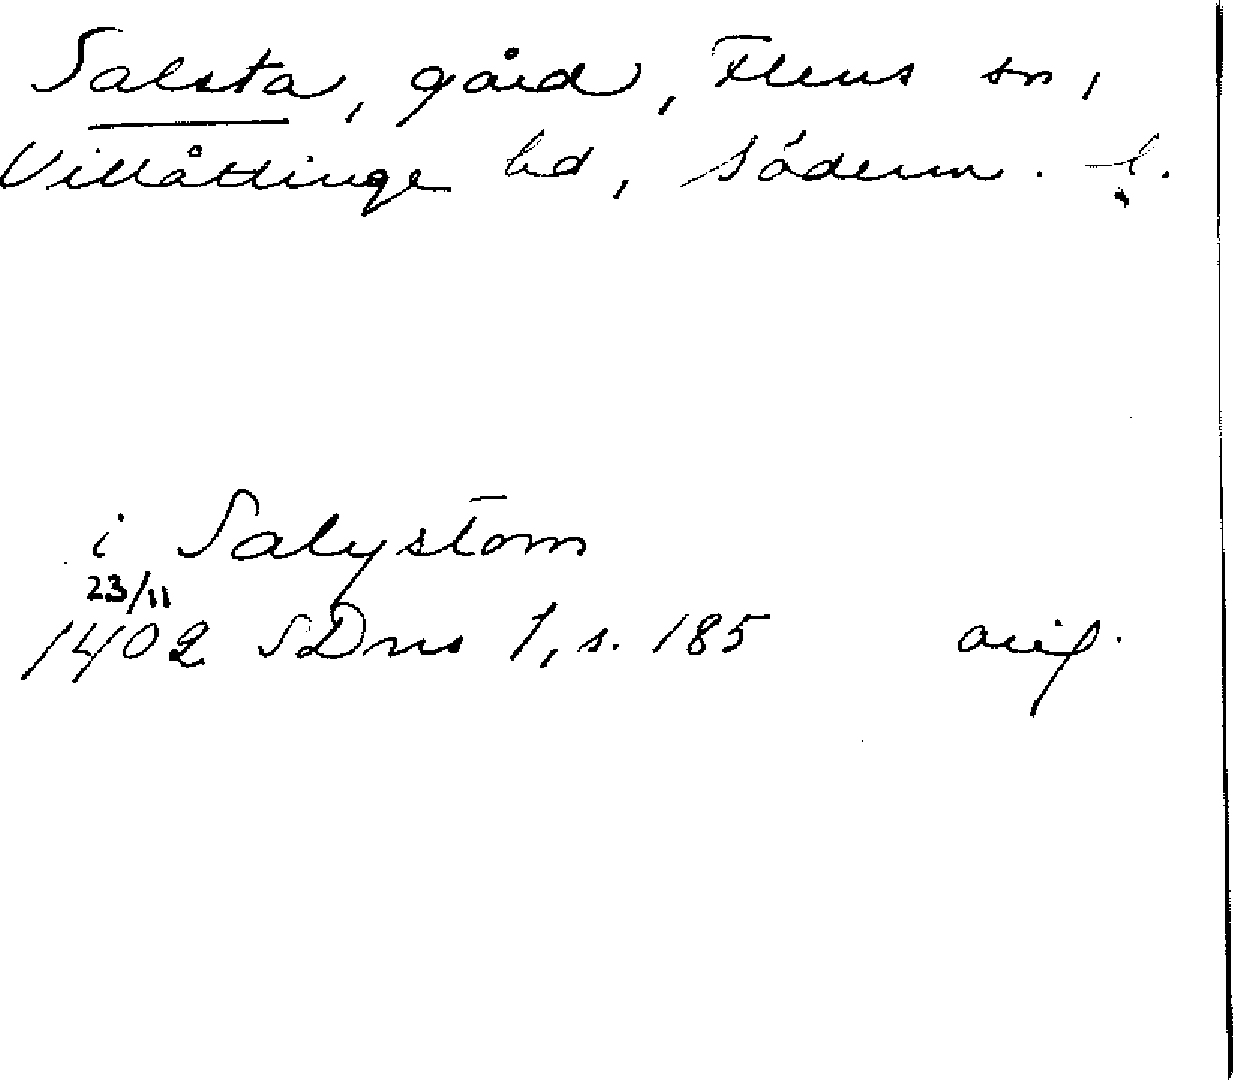 Salsta, gård, Flens sn,
Villåttinge hd, Söderm. l.
i Salystom
23/11
1402 SDns 1, s. 185 orig.